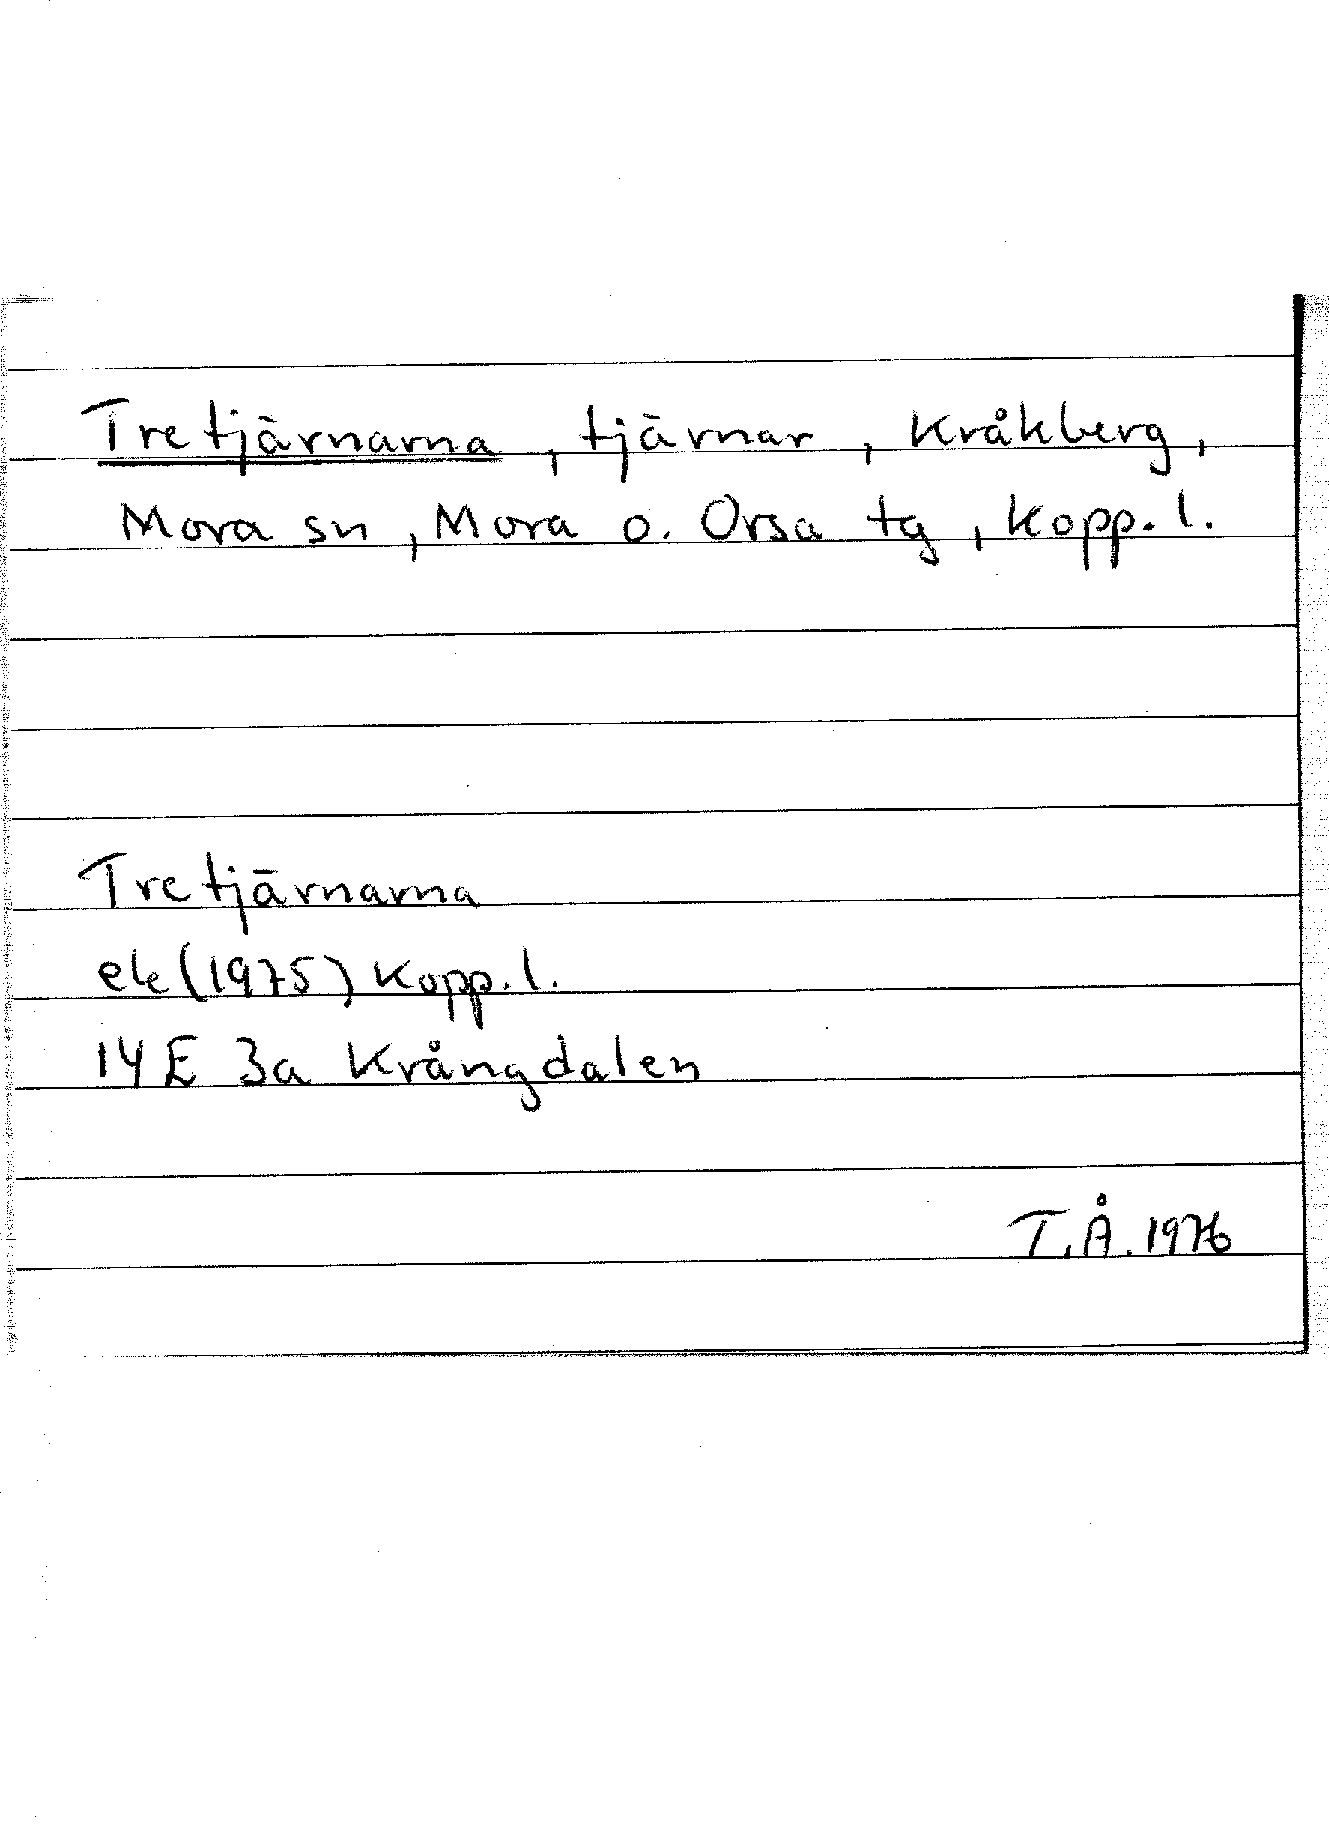 Tretjärnarna, tjärnar, Kråkberg,
Mora sn, Mora o. Orsa tg, Kopp. l.
Tretjärnarna
ek (1975) Kopp. l.
14E 3a Krångdalen
T.Å. 1976